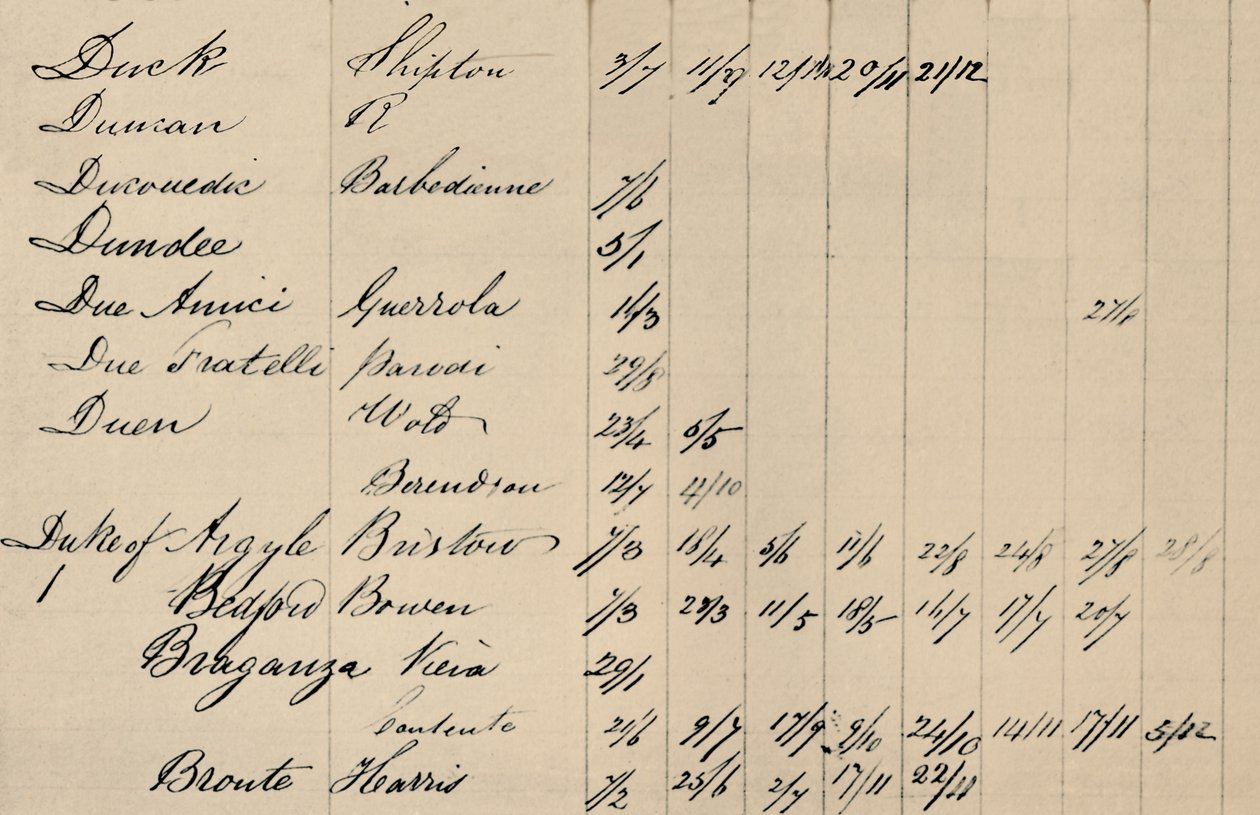 Duck Shipton 3/7 11/9 12/11 20/11 21/12
Duncan R
Ducouedic Barbedienne 7/6
Dundee 5/1
Due Amici Guerrola 11/3 27/8
Due Fratelli Parodi 29/8
Duen Wold 23/4 5/5
Berendson 12/7 4/10
Duke of Argyle Bristow 7/3 18/4 5/6 11/6 22/8 24/8 27/8 28/8
Bedford Bowen 7/3 23/3 11/5 18/5 14/7 17/7 20/7
Braganza Vieira 29/1
Contente 21/6 9/7 17/9 9/10 24/10 14/11 17/11 5/12
Bronte Harris 7/2 25/6 2/7 17/11 22/11